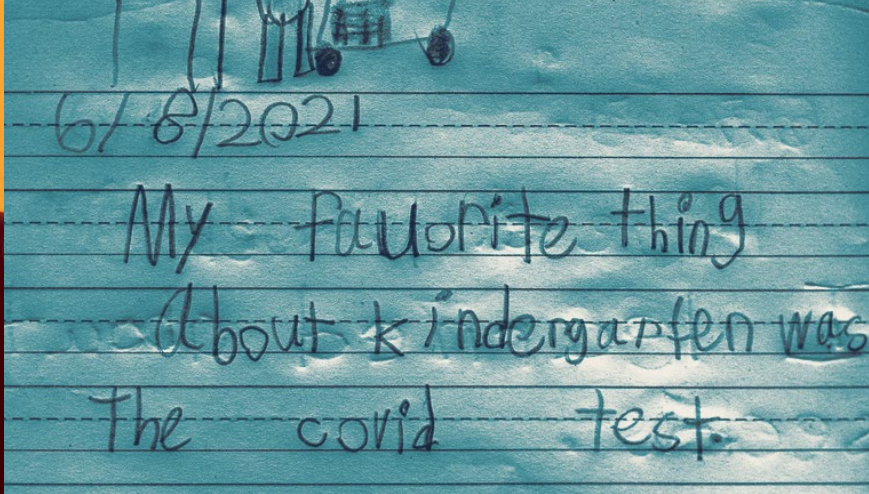 6/8/2021
My favorite thing
about kindergarten was
The covid test.